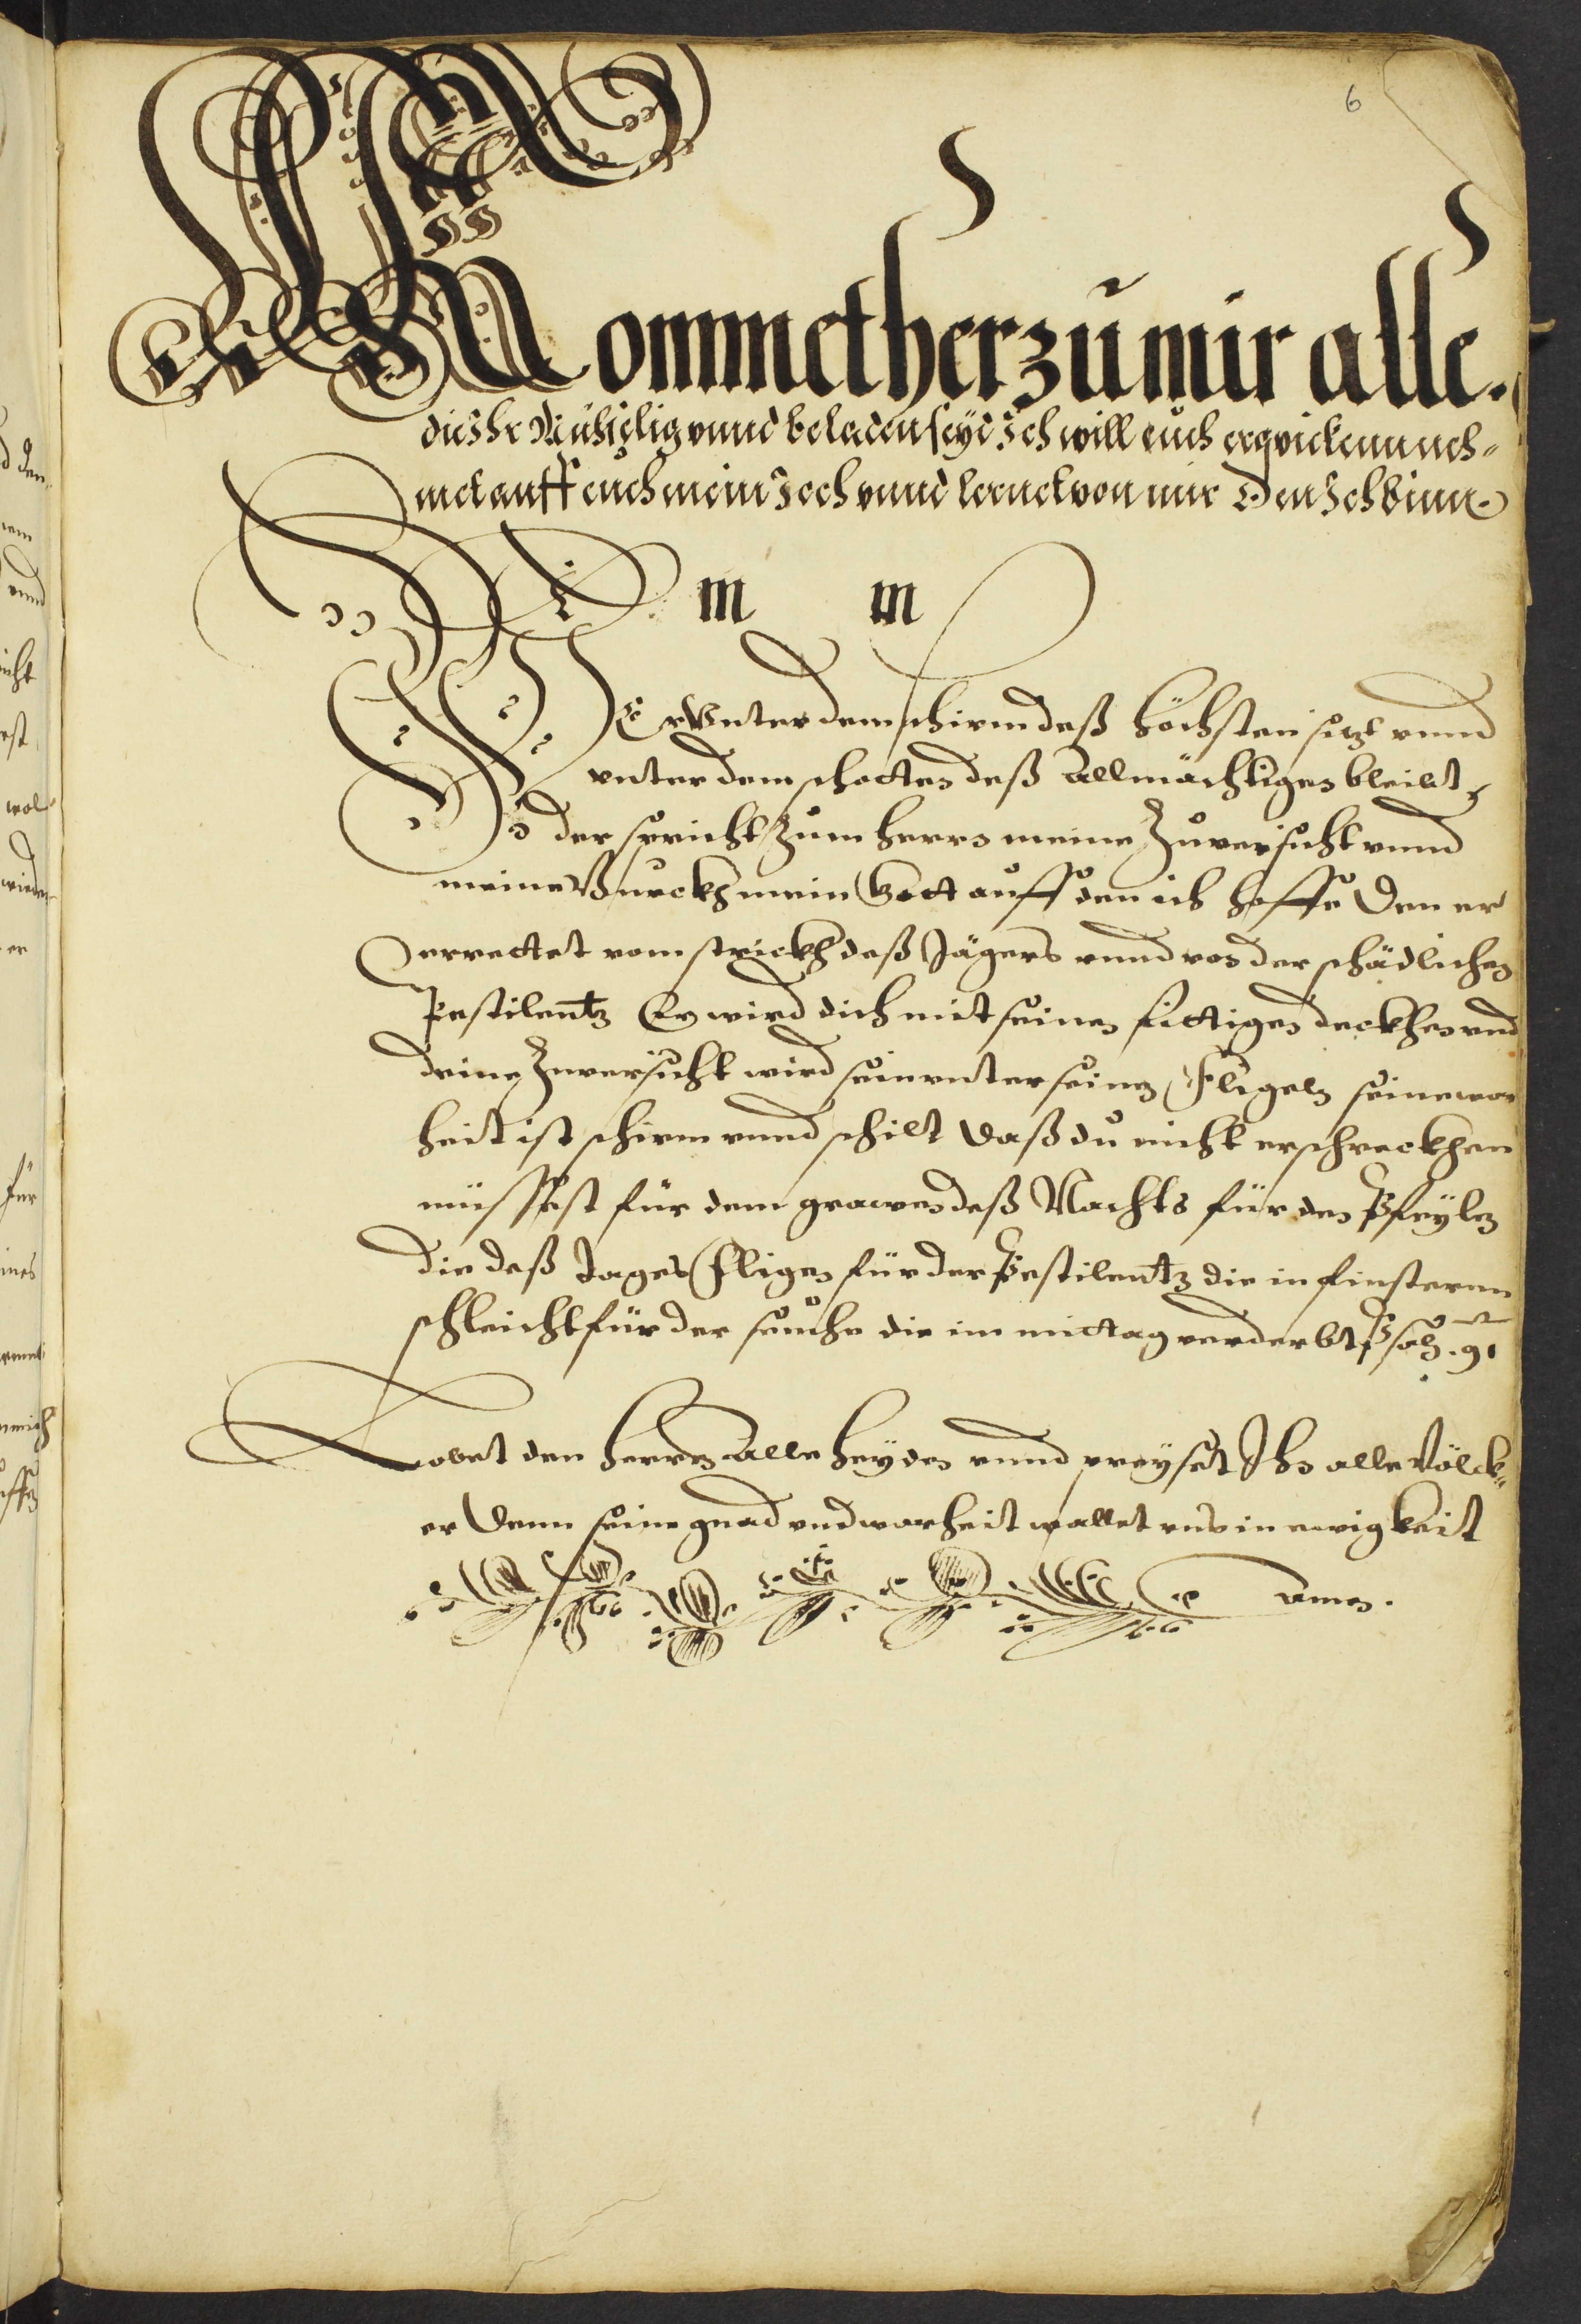 6
Kommet her zu mir alle.
die Ihr Müheselig vnnd beladen seyd Ich will euch erquickenn neh=
met auff euch mein Joch vnnd lernet von mir Den Ich binn
m m
Wer Vnter dem schirm deß Höchsten sitzt vnnd
vnter dem schatten deß Allmächtigen bleibt,
der spricht zum Herrn meine Zuversicht vnnd
meine Burckh mein Gott auff den ich hoffe Den er
errettet vom strickh deß Jägers vnnd von der schädlichen
Pestilentz Er wird dich mit seinen fittigen deckhen vnd
deine Zuversicht wird sein vnter seinen Fligeln seine war
heit ist schirm vnnd schilt daß du nicht erschreckhen
müssest für dem grawen deß Nachts für den Pfeylen
die deß Tages fligen für der Pestilentz die in finsternn
schleicht für der seuche die im mittag verderbt Psalm. 91
Lobet den Herren Alle Heyden vnnd preyset Ihn alle Völck=
er Denn seine gnad vnd warheit waltet vns in ewigkeit
Amen.